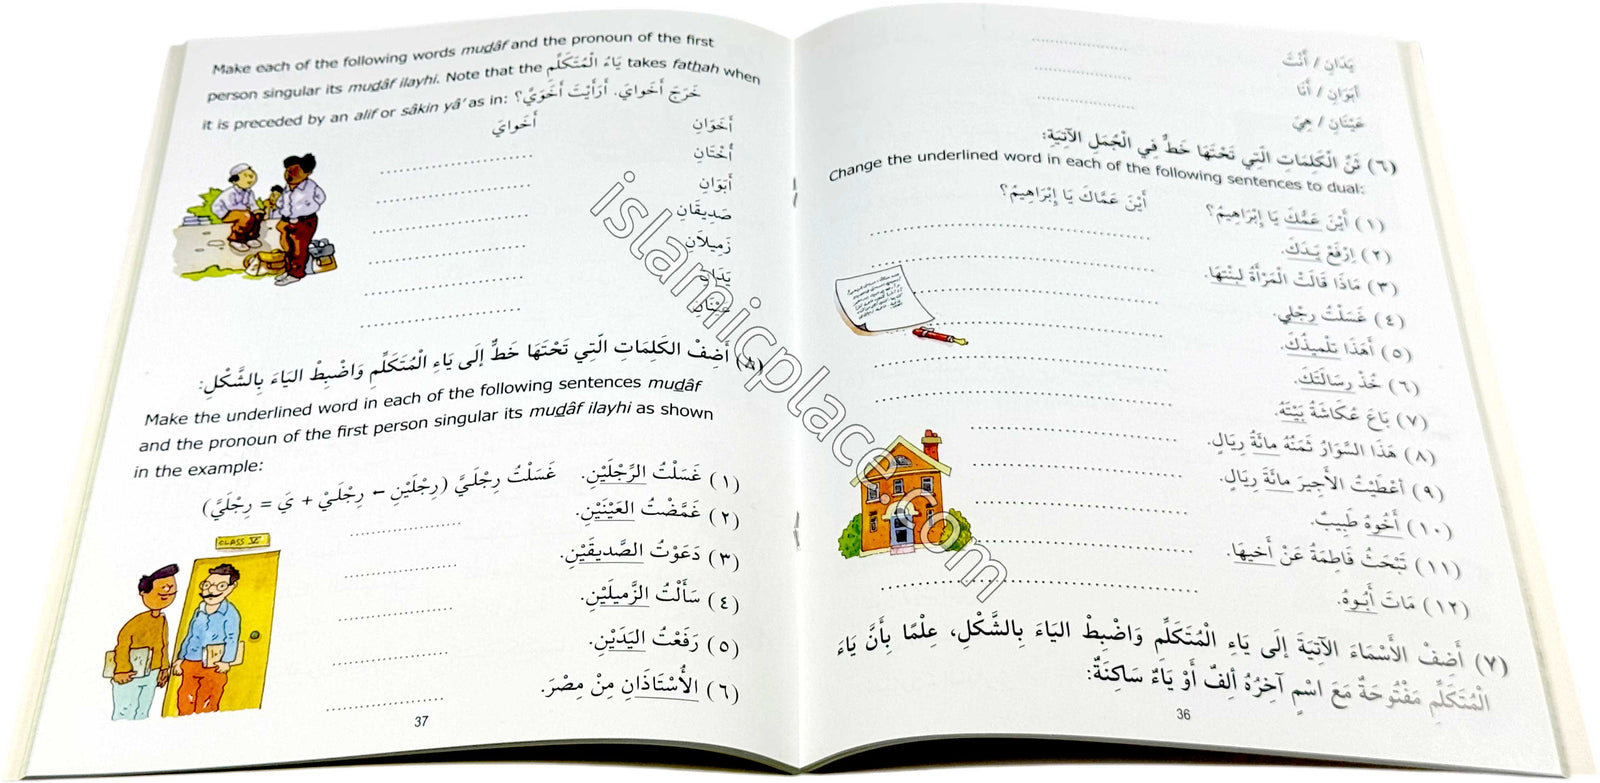 يَدَانِ / أَنْتَ
أَبَوَانِ / أَنَا
عَيْنَانِ / هِيَ
(٦) ثَنِّ الْكَلِمَاتِ الَّتِي تَحْتَهَا خَطٌّ فِي الْجُمَلِ الآتِيَةِ:
Change the underlined word in each of the following sentences to dual:
(١) أَيْنَ عَمُّكَ يَا إِبْرَاهِيمُ؟ أَيْنَ عَمَّاكَ يَا إِبْرَاهِيمُ؟
(٢) اِرْفَعْ يَدَكَ.
(٣) مَاذَا قَالَتْ الْمَرْأَةُ لِبِنْتِهَا.
(٤) غَسَلْتُ رِجْلِي.
(٥) أَهَذَا تِلْمِيذُكَ.
(٦) خُذْ رِسَالَتَكَ.
(٧) بَاعَ عُكَاشَةُ بَيْتَهُ.
(٨) هَذَا السِّوَارُ ثَمَنُهُ مِائَةُ رِيَالٍ.
(٩) أَعْطَيْتُ الأَجِيرَ مِائَةَ رِيَالٍ.
(١٠) أَخُوهُ طَبِيبٌ.
(١١) تَبْحَثُ فَاطِمَةُ عَنْ أَخِيهَا.
(١٢) مَاتَ أَبُوهُ.
(٧) أَضِفْ الأَسْمَاءَ الآتِيَةَ إِلَى يَاءِ الْمُتَكَلِّمِ وَاضْبِطْ اليَاءَ بِالشَّكْلِ، عِلْمًا بِأَنَّ يَاءَ
الْمُتَكَلِّمِ مَفْتُوحَةٌ مَعَ اسْمٍ آخِرُهُ أَلِفٌ أَوْ يَاءٌ سَاكِنَةٌ:
36
Make each of the following words mudâf and the pronoun of the first
person singular its mudâf ilayhi. Note that the يَاءُ الْمُتَكَلِّمِ takes fathah when
it is preceded by an alif or sâkin yâ' as in: خَرَجَ أَخَوَايَ. أَرَأَيْتَ أَخَوَيَّ؟
أَخَوَانِ أَخَوايَ
أُخْتَانِ
أَبَوَانِ
صَدِيقَانِ
زَمِيلاَنِ
يَدَانِ
عَيْنَانِ
(٨) أَضِفْ الكَلِمَاتِ الَّتِي تَحْتَهَا خَطٌّ إِلَى يَاءِ الْمُتَكَلِّمِ وَاضْبِطْ اليَاءَ بِالشَّكْلِ:
Make the underlined word in each of the following sentences mudâf
and the pronoun of the first person singular its mudâf ilayhi as shown
in the example:
(١) غَسَلْتُ الرِّجْلَيْنِ. غَسَلْتُ رِجْلَيَّ (رِجْلَيْنِ ← رِجْلَيْ + يَ = رِجْلَيَّ)
(٢) غَمَّضْتُ العَيْنَيْنِ.
(٣) دَعَوْتُ الصَّدِيقَيْنِ.
(٤) سَأَلْتُ الزَّمِيلَيْنِ.
(٥) رَفَعْتُ اليَدَيْنِ.
(٦) الأُسْتَاذَانِ مِنْ مِصْرَ.
CLASS V
37
islamicplace.com